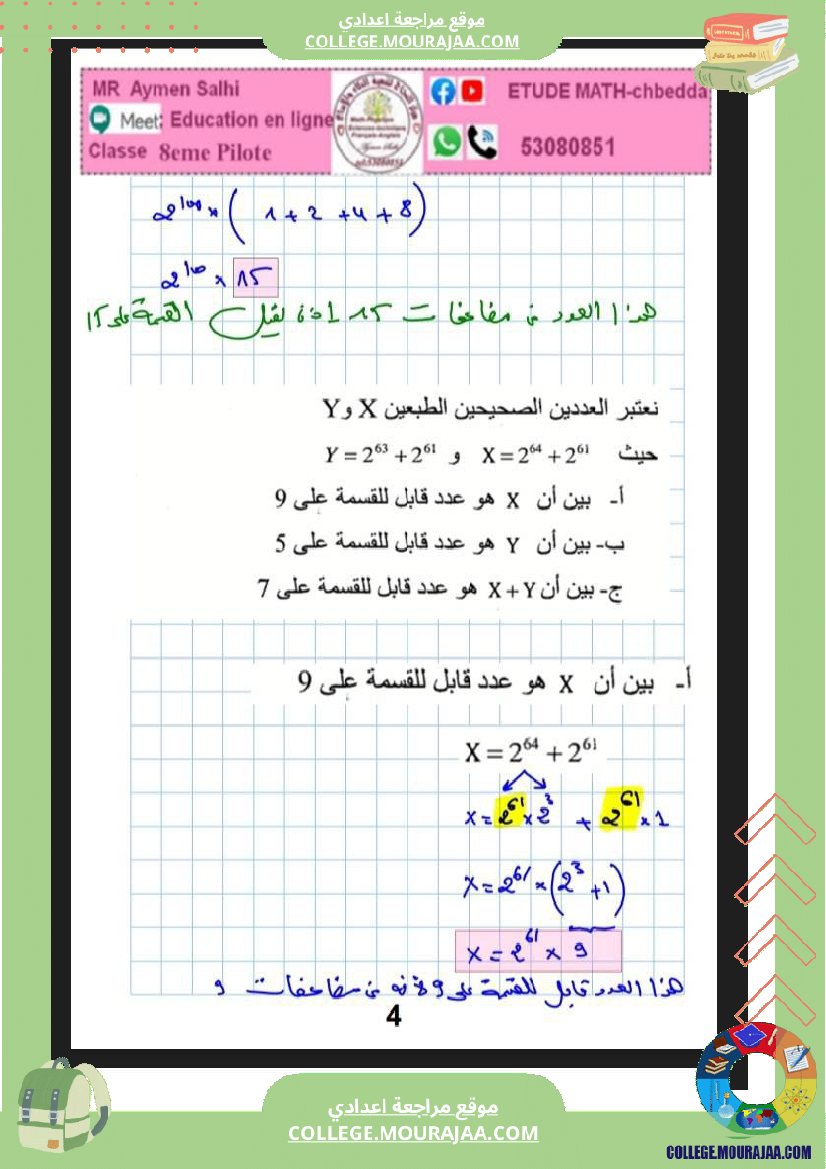 موقع مراجعة اعدادي
COLLEGE.MOURAJAA.COM
MR Aymen Salhi
Meet: Education en ligne
Classe 8eme Pilote
ETUDE MATH-chbedda
53080851
2¹⁰⁰ × ( 1 + 2 + 4 + 8 )
2¹⁰⁰ × 15
هذا العدد من مضاعفات 15 إذا يقبل القسمة على 15
نعتبر العددين الصحيحين الطبعين X و Y
حيث X = 2⁶⁴ + 2⁶¹ و Y = 2⁶³ + 2⁶¹
أ- بين أن X هو عدد قابل للقسمة على 9
ب- بين أن Y هو عدد قابل للقسمة على 5
ج- بين أن X + Y هو عدد قابل للقسمة على 7
أ- بين أن X هو عدد قابل للقسمة على 9
X = 2⁶⁴ + 2⁶¹
X = 2⁶¹ × 2³ + 2⁶¹ × 1
X = 2⁶¹ × (2³ + 1)
X = 2⁶¹ × 9
هذا العدد قابل للقسمة على 9 لأنه من مضاعفات 9
4
موقع مراجعة اعدادي
COLLEGE.MOURAJAA.COM
COLLEGE.MOURAJAA.COM